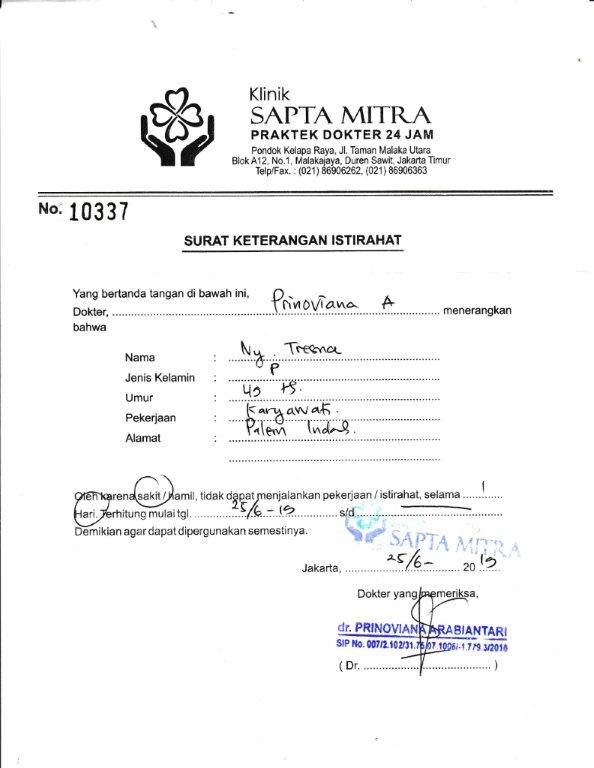 Klinik
SAPTA MITRA
PRAKTEK DOKTER 24 JAM
Pondok Kelapa Raya, Jl. Taman Malaka Utara
Blok A12, No.1, Malakajaya, Duren Sawit, Jakarta Timur
Telp/Fax. : (021) 86906262, (021) 86906363
No. 10337
SURAT KETERANGAN ISTIRAHAT
Yang bertanda tangan di bawah ini,
Dokter, Prinoviana A menerangkan
bahwa
Nama : Ny. Tresna
Jenis Kelamin : P
Umur : 49 th.
Pekerjaan : Karyawati.
Alamat : Palem Indah.
Oleh karena sakit / hamil, tidak dapat menjalankan pekerjaan / istirahat, selama 1
Hari. Terhitung mulai tgl. 25/6-19 s/d
Demikian agar dapat dipergunakan semestinya.
SAPTA MITRA
Jakarta, 25/6- 2019
Dokter yang memeriksa,
dr. PRINOVIANA ARABIANTARI
SIP No. 007/2.102/31.75.07.1006/-1.779.3/2016
( Dr. )